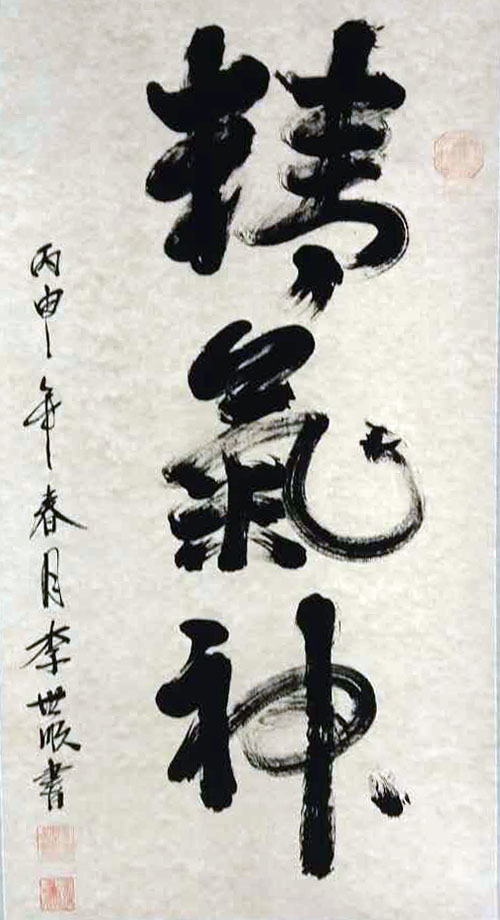 精氣神
丙申年春月李世順書